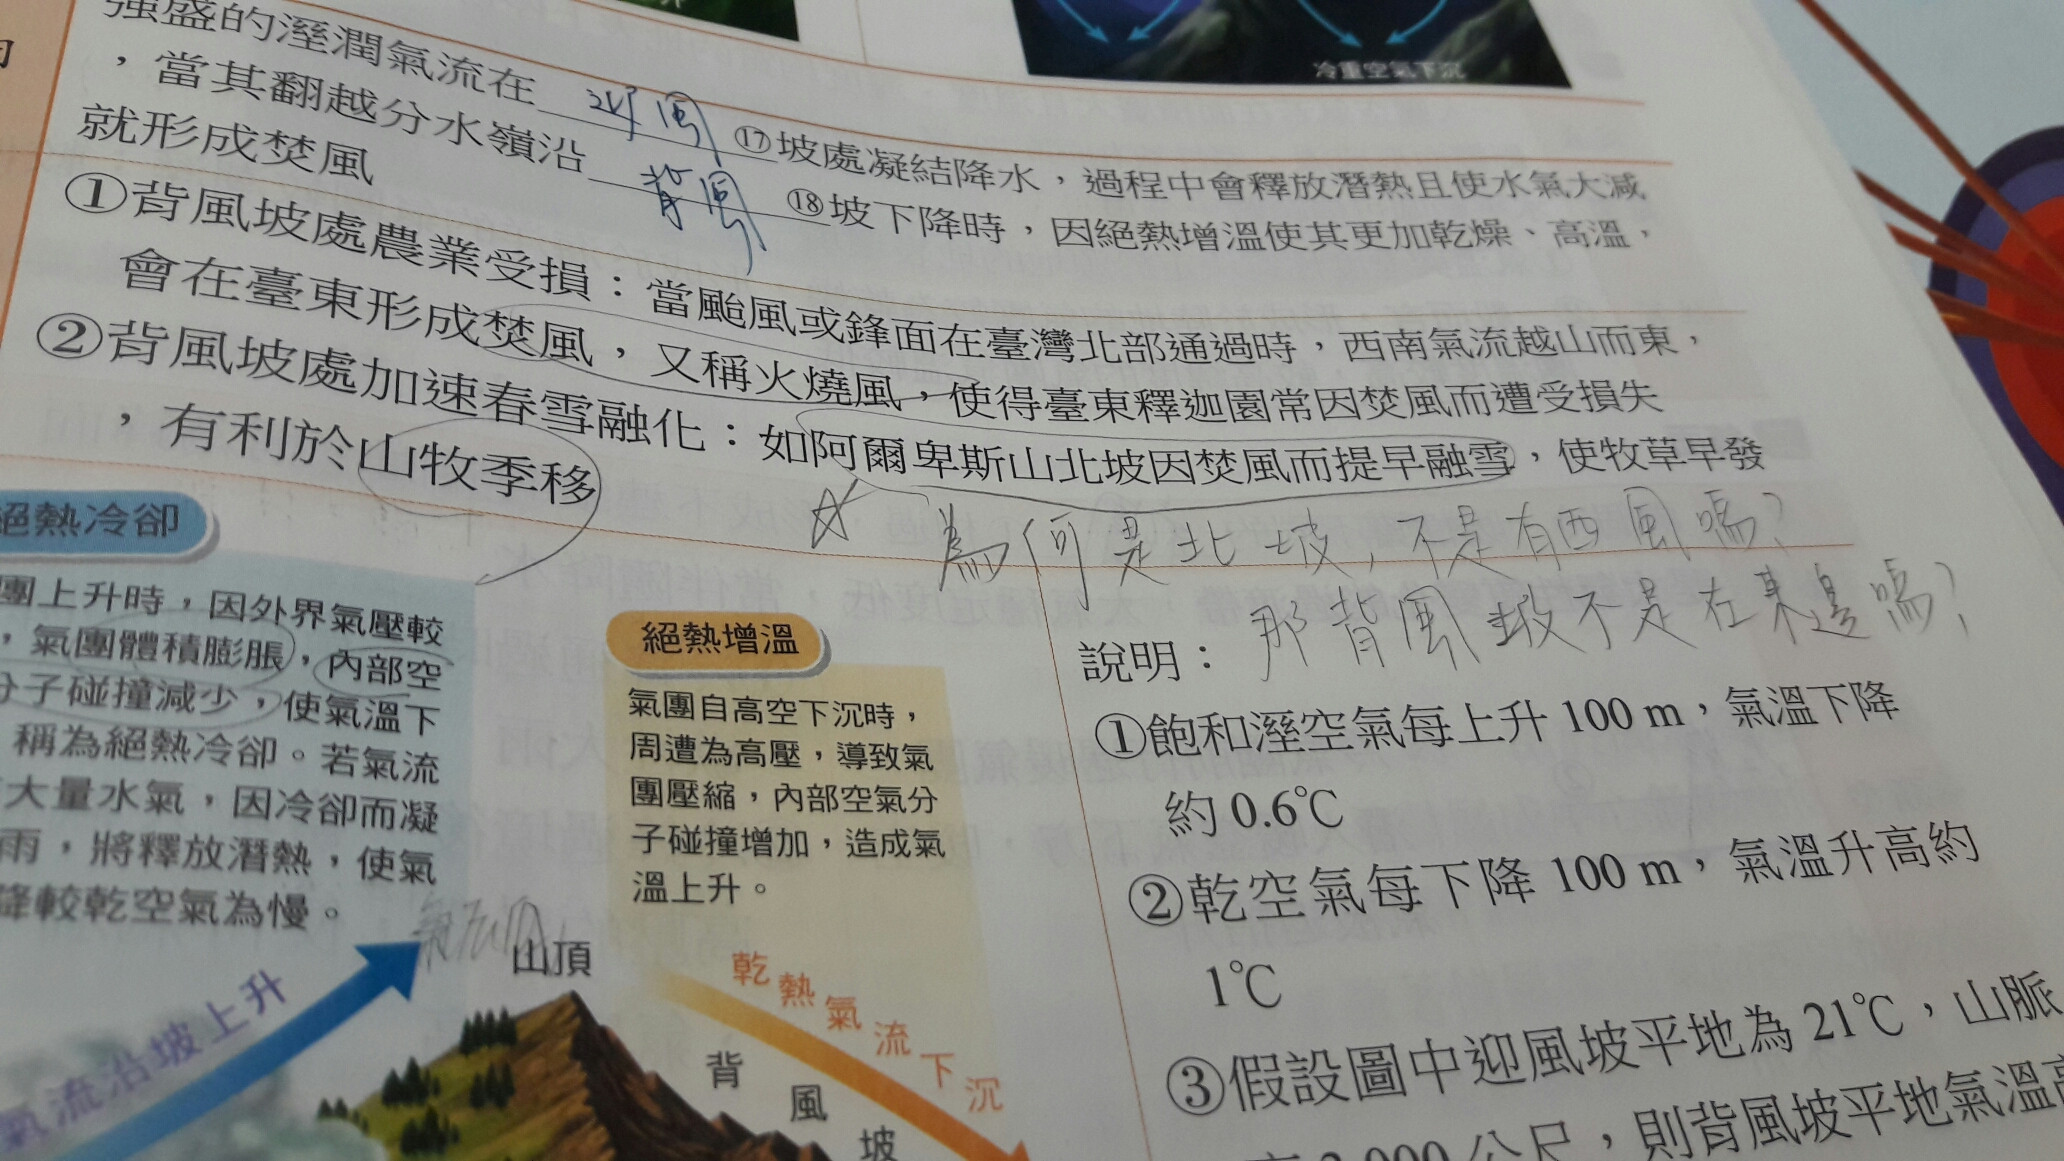 冷重空氣下沉
強盛的溼潤氣流在 迎風 ⑰坡處凝結降水，過程中會釋放潛熱且使水氣大減
，當其翻越分水嶺沿 背風 ⑱坡下降時，因絕熱增溫使其更加乾燥、高溫，
就形成焚風
①背風坡處農業受損：當颱風或鋒面在臺灣北部通過時，西南氣流越山而東，
會在臺東形成焚風，又稱火燒風，使得臺東釋迦園常因焚風而遭受損失
②背風坡處加速春雪融化：如阿爾卑斯山北坡因焚風而提早融雪，使牧草早發
，有利於山牧季移
為何是北坡，不是有西風嗎？
那背風坡不是在東邊嗎？
絕熱冷卻
團上升時，因外界氣壓較
，氣團體積膨脹，內部空
分子碰撞減少，使氣溫下
稱為絕熱冷卻。若氣流
大量水氣，因冷卻而凝
雨，將釋放潛熱，使氣
降較乾空氣為慢。
絕熱增溫
氣團自高空下沉時，
周遭為高壓，導致氣
團壓縮，內部空氣分
子碰撞增加，造成氣
溫上升。
說明：
①飽和溼空氣每上升 100 m，氣溫下降
約 0.6℃
②乾空氣每下降 100 m，氣溫升高約
1℃
③假設圖中迎風坡平地為 21℃，山脈
000 公尺，則背風坡平地氣溫
氣流沿坡上升
山頂
乾熱氣流下沉
背風坡